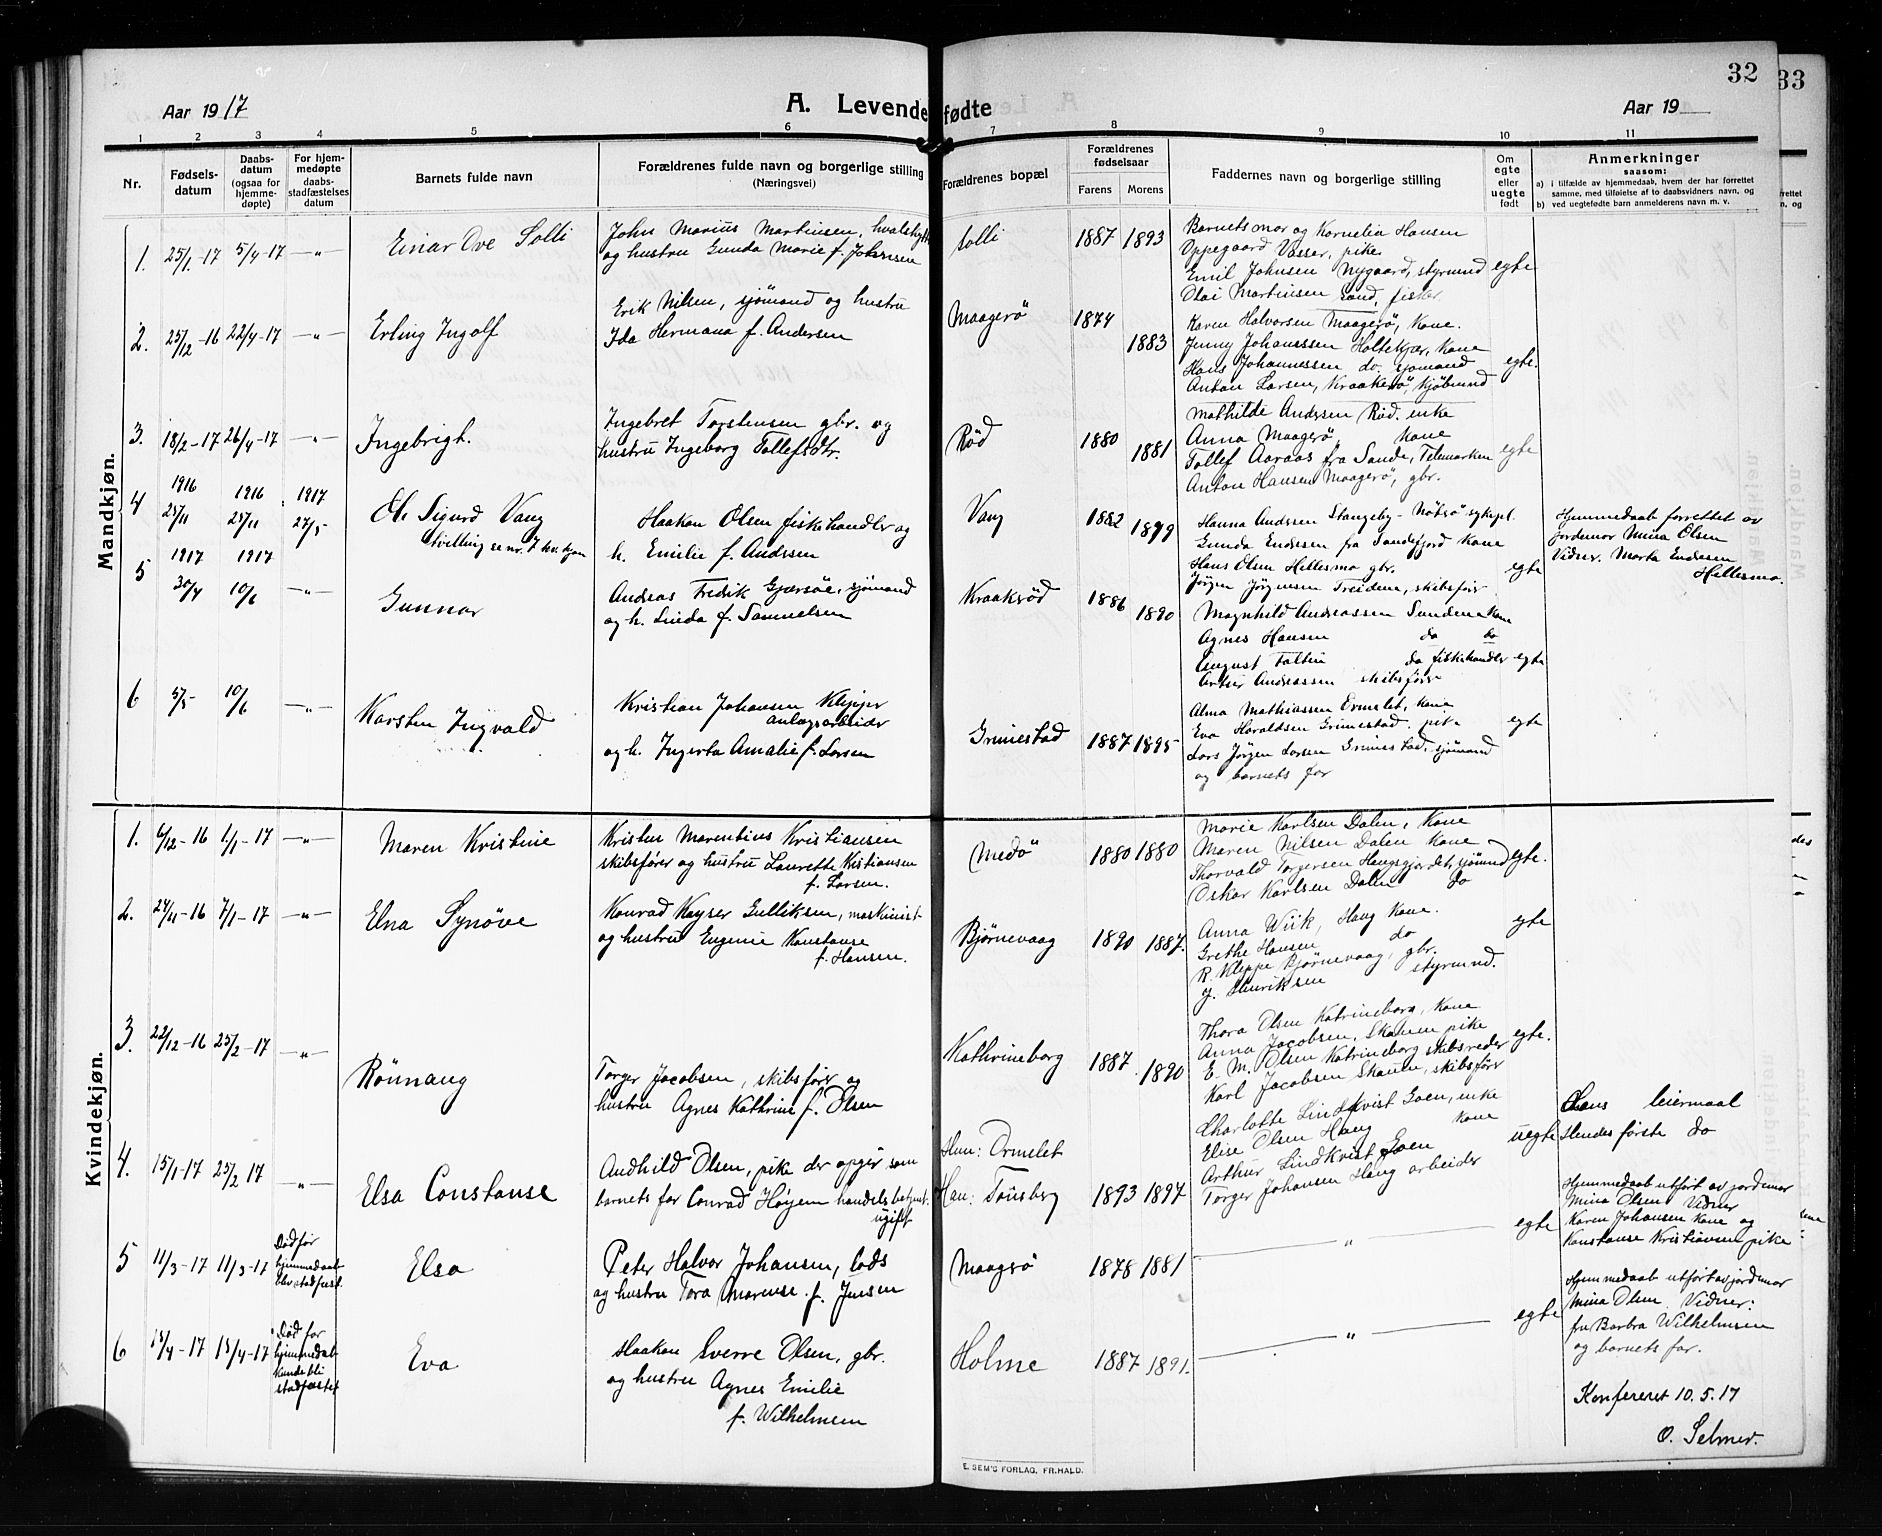 32
33
Aar 1917
A. Levendefødte
Aar 19
1 2 3 4 5 6 7 8 9 10 11
Nr.
Fødsels-
datum
Daabs-
datum
(ogsaa for
hjemme-
døpte)
For hjem-
medøpte
daabs-
stadfæstelses
datum
Barnets fulde navn
Forældrenes fulde navn og borgerlige stilling
(Næringsvei)
Forældrenes bopæl
Forældrenes
fødselsaar
Farens Morens
Faddernes navn og borgerlige stilling
Om
egte
eller
uegte
født
Anmerkninger
saasom:
a) i tilfælde av hjemmedaab, hvem der har forrettet
samme, med tilføielse af to daabsvidners navn, og
b) ved uegtefødte barn anmelderens navn m. v.
Mandkjøn.
1. 25/1-17 5/4-17 —„— Einar Ove Solli
John Marius Martinsen, hvalskytt
og hustru Gunda Marie f. Johnsen
Solli 1887 1893
Barnets mor og Kornelia Hansen
Oppegaard Vasser, pike
Emil Johnsen Nygaard, styrmnd egte
Olai Martinsen Sand, fisker
2. 25/12-16 22/4-17 —„— Erling Ingolf
Erik Nilsen, sjømand og hustru
Ida Hermana f. Andersen
Maagerö 1874 1883
Karen Halvorsen Maagerö, Kone.
Jenny Johanessen Holtekjær, Kone
Hans Johannessen do sjomand egte.
Anton Larsen, Kraakerö, kjöbmnd
3. 18/2-17 26/4-17 —„— Ingebrigt.
Ingebret Torstensen gbr. og
hustru Ingeborg Tollefsdtr.
Röd 1880 1881
Mathilde Andersen Röd. enke
Anna Maagerö, Kone
Tollef Aaraas fra Sande, Telemarken egte
Anton Hansen Maagerö, gbr.
4 1916 25/11 1916 25/11 1917 27/5- Ole Sigurd Vang
tvilling se nr. 7 kv. kjøn
Haakon Olsen fiskehandler og
h. Emilie f. Andersen
Vang 1882 1899
Hanna Andersen Stangeby - Nötterö sykepl.
Gunda Endresen fra Sandefjord Kone
Hans Olsen Hellesmo gbr. egte
Jörgen Jörgensen Treidene, skibsför
Hjemmedaab forrettet av
jordemor Mina Olsen
Vidner. Marta Endresen
Hellesmo.
5 1917 30/4 1917 10/6 —„— Gunnar
Andreas Fredrik Gjærsöe, sjömand
og h. Linda f. Samuelsen
Kraakeröd 1886 1890
Magnhild Andreassen Sundene Kone
Agnes Hansen do do
August Faltin do fiskehandler egte
Artur Andreassen skibsförer
6 5/5- 10/6 —„— Karsten Ingvald
Kristian Johansen Klepper
anlægsarbeider
og h. Ingerta Amalie f. Larsen
Grimestad 1887 1895
Alma Mathiassen Ormelet, Kone
Eva Haraldsen Grimestad. pike egte
Lars Jörgen Larsen Grimestad, sjömand
og barnets far
Kvindekjøn.
1. 6/12-16 1/1-17 —„— Maren Kristine
Kristen Marentius Kristiansen
skibsförer og hustru Laurette Kristiansen
f. Larsen.
Medö 1880 1880
Marie Karlsen Dalen, Kone
Maren Nilsen Dalen Kone
Thorvald Torgersen Haugsgjerdet, sjömnd egte.
Oskar Karlsen Dalen do
2. 24/11-16 7/1-17 —„— Elna Synöve
Konrad Kayser Gulliksen, maskinist
og hustru Eugenie Konstanse
f. Hansen.
Björnevaag 1890 1887.
Anna Wiik, Haug Kone. egte
Grethe Hansen do
R. Kleppe Björnevaag, gbr.
J. Henriksen styrmnd.
3. 22/12-16 25/2-17 —„— Rönnaug
Torger Jacobsen, skibsförer og
hustru Agnes Kathrine f. Olsen
Kathrineborg 1887. 1890
Thora Olsen Katrineborg, Kone
Anna Jacobsen, Skauen pike
E. M. Olsen Katrineborg skibsreder egte.
Karl Jacobsen Skauen, skibsförer
4. 15/1-17 25/2 17 —„— Elsa Constanse
Andhild Olsen, pike der opgir som
barnets far Conrad Höyem handelsbetjent.
ugift
Hun: Ormelet
Han: Tönsberg 1893 1897
Charlotte Lindkvist Goen, enke
Elise Olsen Haug Kone uegte
Arthur Lindkvist Goen
Torger Johansen Haug arbeider
Hans leiermaal
Hendes förste do
5 11/3-17 11/3-17
Död för
hjemmedaab
blev stadfæst.
Elsa
Peter Halvor Johansen, lods
og hustru Tora Marense. f. Jensen
Maagerö 1878 1881 —„— egte
Hjemmedaab utfört av jordemor
Mina Olsen Vidner
Karen Johansen Kone og
Konstanse Kristiansen pike
6 15/4-17 15/4-17
Död för
hjemmedaab
kunde bli
stadfæstet
Eva
Haakon Sverre Olsen, gbr.
og hustru Agnes Emilie
f. Wilhelmsen
Holme 1887 1891. —„— egte
Hjemmedaab utfört av jordemor
Mina Olsen. Vidner:
fru Barbra Wilhelmsen
og barnets far.
Konfereret 10.5.17
O. Selmer.
E. SEM'S FORLAG, FR.HALD.